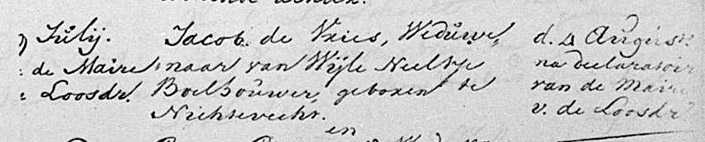 Julij. Jacob. de Vries, Weduwe, d. 4 August
de Maire naar van Wijle Neeltje na declaratoir
Loosdr. Boelhouwer, geboren te van de Maire
Nichtevecht. v. de Loosdr
en